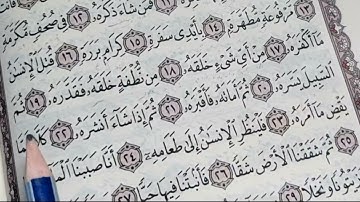 فَمَن شَآءَ ذَكَرَهُۥ ١٢ فِى صُحُفٍ مُّكَرَّمَةٍ
١٣ مَّرْفُوعَةٍ مُّطَهَّرَةٍۭ ١٤ بِأَيْدِى سَفَرَةٍ ١٥ كِرَامٍۭ بَرَرَةٍ ١٦ قُتِلَ ٱلْإِنسَٰنُ
مَآ أَكْفَرَهُۥ ١٧ مِنْ أَىِّ شَىْءٍ خَلَقَهُۥ ١٨ مِن نُّطْفَةٍ خَلَقَهُۥ فَقَدَّرَهُۥ ١٩ ثُمَّ
ٱلسَّبِيلَ يَسَّرَهُۥ ٢٠ ثُمَّ أَمَاتَهُۥ فَأَقْبَرَهُۥ ٢١ ثُمَّ إِذَا شَآءَ أَنشَرَهُۥ ٢٢ كَلَّا
يَقْضِ مَآ أَمَرَهُۥ ٢٣ فَلْيَنظُرِ ٱلْإِنسَٰنُ إِلَىٰ طَعَامِهِۦٓ ٢٤ أَنَّا صَبَبْنَا
ثُمَّ شَقَقْنَا ٱلْأَرْضَ شَقًّا ٢٦ فَأَنۢبَتْنَا فِيهَا حَبًّا ٢٧
وَنَخْلًا ٢٩